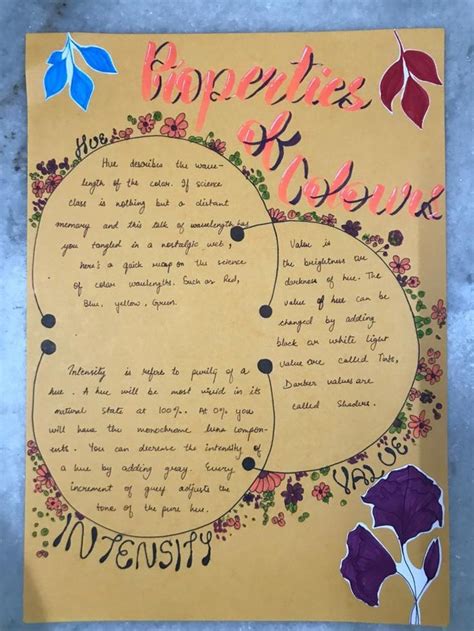 Properties
of
Colours
HUE
Hue describes the wave-
length of the color. If science
class is nothing but a distant
memory and this talk of wavelength has
you tangled in a nostalgic web,
here's a quick recap on the science
of color wavelengths. Such as Red,
Blue, yellow, Green.
Value is
the brightness or
darkness of hue. The
value of hue can be
changed by adding
black or white light
value are called Tints,
Darker values are
called Shaders.
VALUE
Intensity is refers to purity of a
hue. A hue will be most vivid in its
natural state at 100%. At 0% you
will have the monochrome compon-
ents. You can decrease the intensity of
a hue by adding gray. Every
increment of grey adjusts the
tone of the pure hue.
INTENSITY